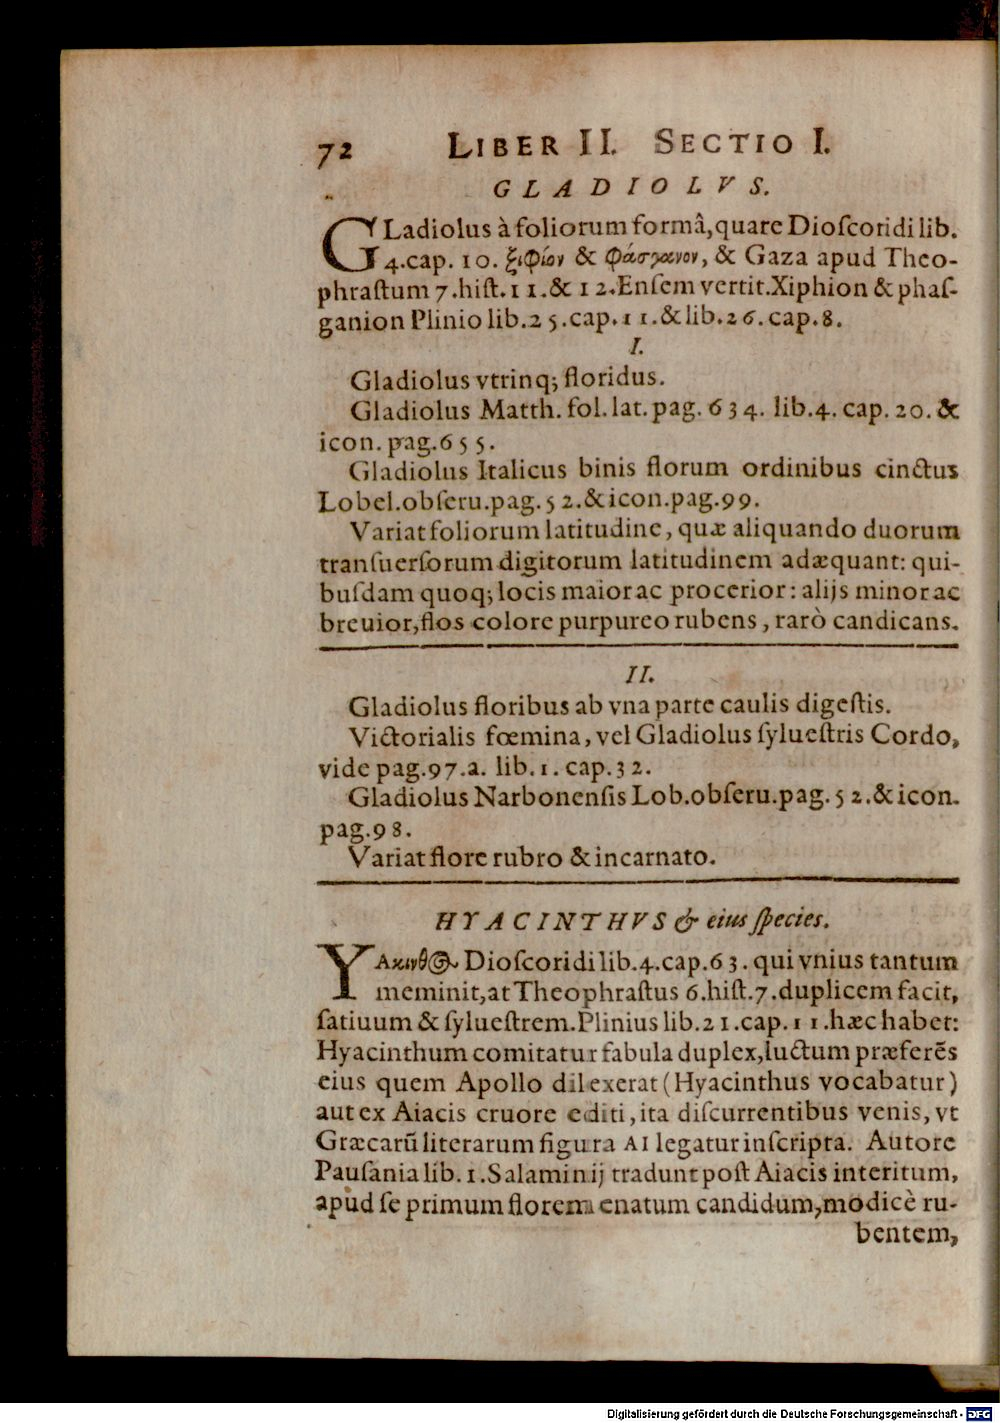 72 LIBER II. SECTIO I.
GLADIOLVS.
GLadiolus à foliorum formâ, quare Dioſcoridi lib.
4.cap. 10. ξιφίον & φάσγανον, & Gaza apud Theo-
phraſtum 7.hiſt.11.& 12.Enſem vertit.Xiphion & phaſ-
ganion Plinio lib.25.cap.11.& lib.26.cap.8.
I.
Gladiolus vtrinq; floridus.
Gladiolus Matth. fol. lat. pag. 634. lib.4. cap. 20. &
icon. pag.655.
Gladiolus Italicus binis florum ordinibus cinctus
Lobel.obſeru.pag.52.& icon.pag.99.
Variat foliorum latitudine, quæ aliquando duorum
tranſuerſorum digitorum latitudinem adæquant: qui-
buſdam quoq; locis maior ac procerior: alijs minor ac
breuior, flos colore purpureo rubens, rarò candicans.
II.
Gladiolus floribus ab vna parte caulis digeſtis.
Victorialis fœmina, vel Gladiolus ſylueſtris Cordo,
vide pag.97.a. lib.1. cap.32.
Gladiolus Narbonenſis Lob.obſeru.pag.52.& icon.
pag.98.
Variat flore rubro & incarnato.
HYACINTHVS & eius ſpecies.
YAκινθος Dioſcoridi lib.4.cap.63. qui vnius tantum
meminit, at Theophraſtus 6.hiſt.7.duplicem facit,
ſatiuum & ſylueſtrem.Plinius lib.21.cap.11.hæc habet:
Hyacinthum comitatur fabula duplex, luctum præferẽs
eius quem Apollo dilexerat (Hyacinthus vocabatur)
aut ex Aiacis cruore editi, ita diſcurrentibus venis, vt
Græcarũ literarum figura AI legatur inſcripta. Autore
Pauſania lib. 1.Salaminij tradunt poſt Aiacis interitum,
apud ſe primum florem enatum candidum, modicè ru-
bentem,
Digitalisierung gefördert durch die Deutsche Forschungsgemeinschaft - DFG